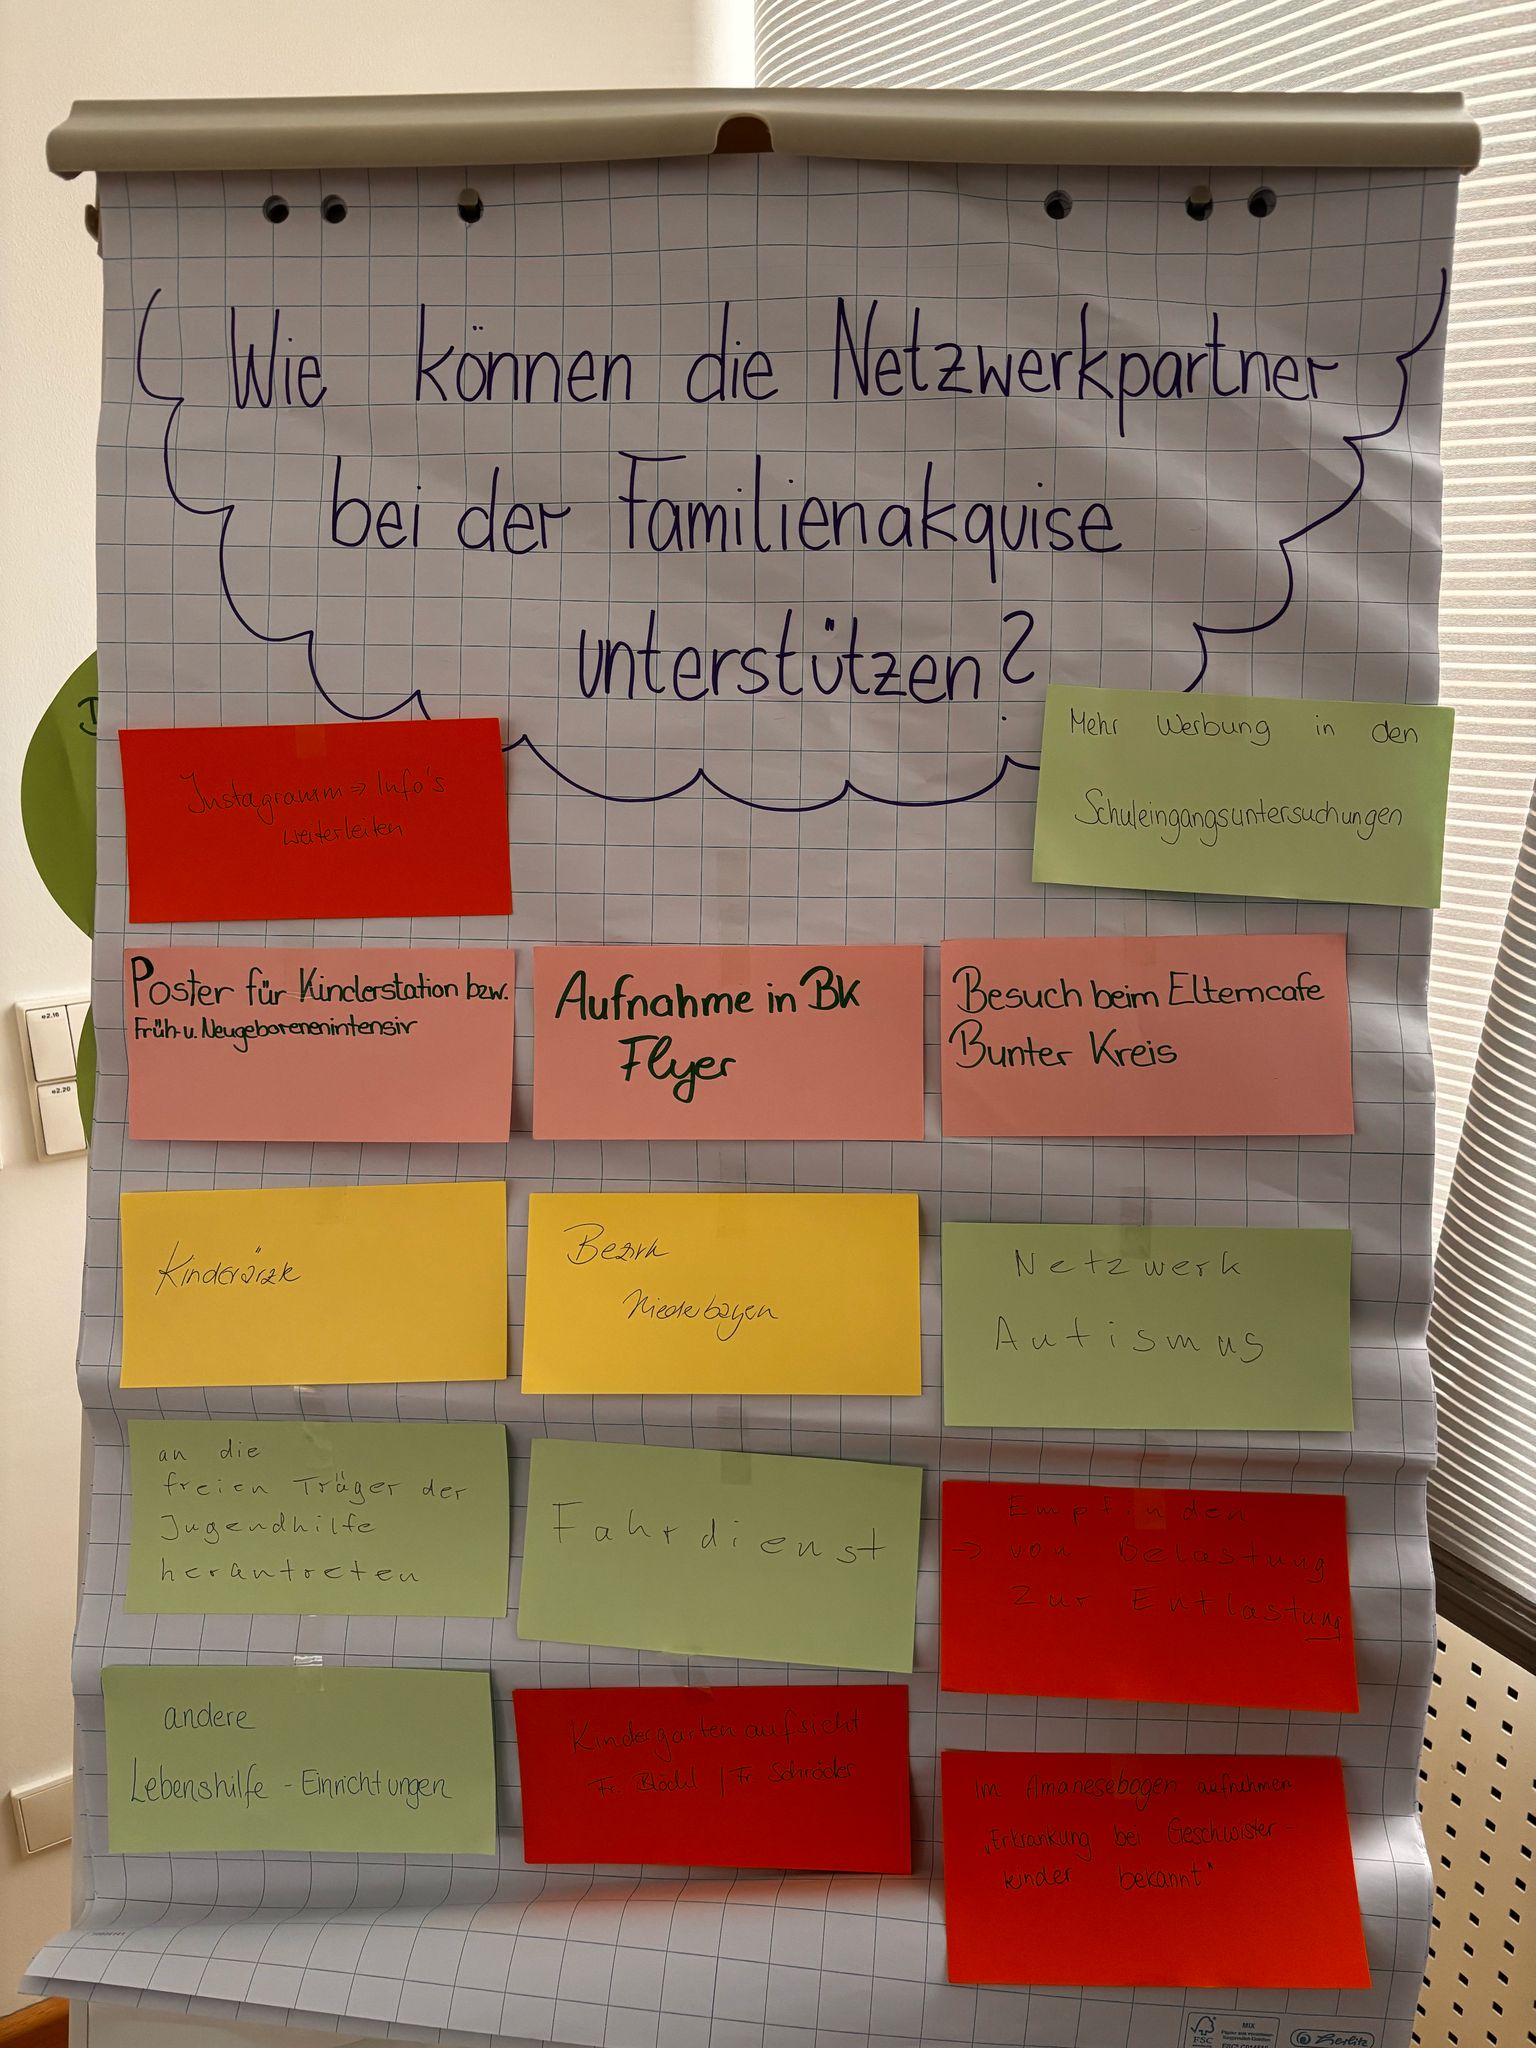 Wie können die Netzwerkpartner
bei der Familienakquise
unterstützen?
Instagramm → Info's
weiterleiten
Mehr Werbung in den
Schuleingangsuntersuchungen
Poster für Kinderstation bzw.
Früh- u. Neugeborenenintensiv
Aufnahme in BK
Flyer
Besuch beim Elterncafe
Bunter Kreis
Kinderärzte
Bezirk
Niederbayern
Netzwerk
Autismus
an die
freien Träger der
Jugendhilfe
herantreten
Fahrdienst
Empfinden
→ von Belastung
zur Entlastung
andere
Lebenshilfe - Einrichtungen
Kindergartenaufsicht
Fr. Blöchl / Fr Schröder
Im Amanesebogen aufnehmen
„Erkrankung bei Geschwister-
kinder bekannt"
e2.16
e2.20
FSC
MIX
Berlitz